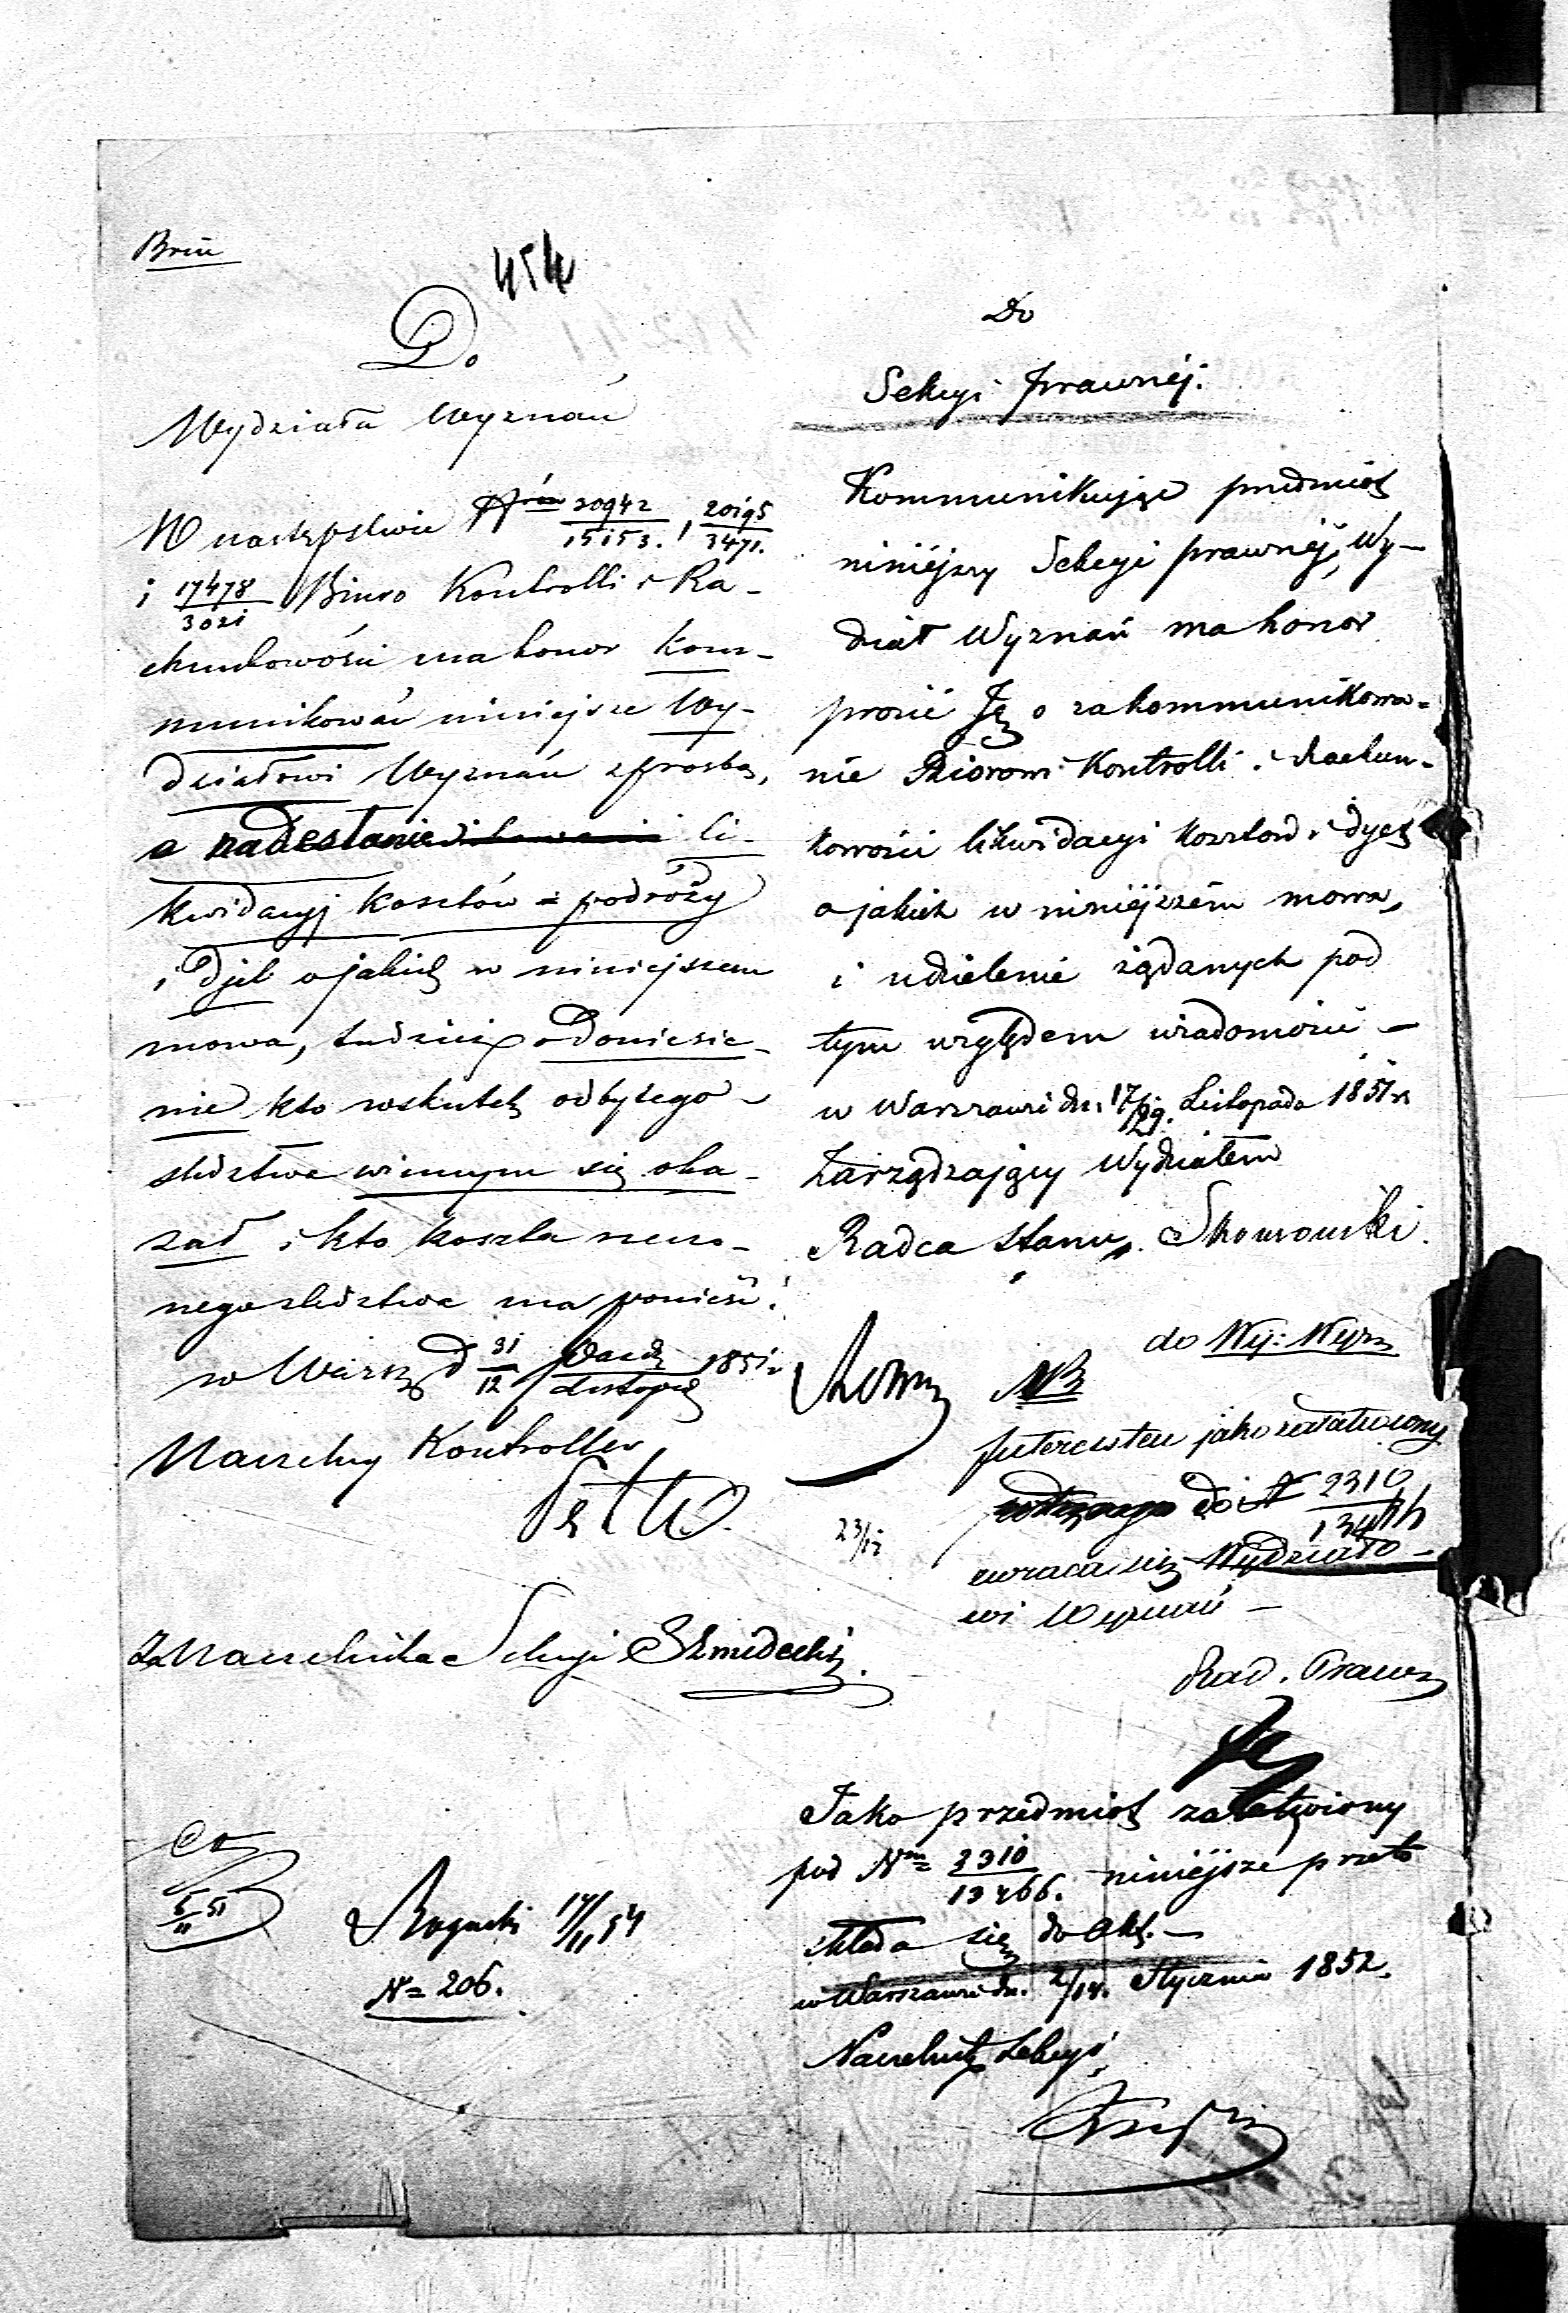 Briu
454
Do
Wydziału Wyznań
W następstwie Nróm 20942/15153., 20195/3471.
i 17478/3021 Biuro Kontrolli i Ra-
chunkowości ma honor kom-
munikować niniejsze Wy-
działowi Wyznań z prośbą,
o nadesłanie li-
kwidacyj kosztów podróży
i djet o jakich w niniejszem
mowa, tudzież o doniesie-
nie kto wskutek odbytego
śledztwa winnym się oka-
zał i kto koszta rzeczo-
nego śledztwa ma ponieść.
w Warsz d 31/12 Paźdz/Listopad 1851 r.
Naczelny Kontroller
Za Naczelnika Sekcyi Szmidecki.
Rogucki 14/11 54
N= 206.
Do
Sekcyi Prawnéj.
Kommunikując przedmiot
niniéjszy Sekcyi prawnéj, Wy-
dział Wyznań ma honor
prosić Ję o zakommunikowa-
nie Biórowi Kontrolli i Rachun-
kowości likwidacyi kosztów i dyet
o jakich w niniéjszém mowa,
i udzielenie żądanych pod
tym względem wiadomości –
w Warszawie dn. 17/29. Listopada 1851 r.
Zarządzający Wydziałem
Radca Stanu, Skowroński.
do Wy: Wyzn
NB
Interes ten jako załatwiony
do N 2310/13466
zwraca się Wydziało-
wi Wyznań –
Rad. Prawn
23/12
Jako przedmiot załatwiony
pod Nm= 2310/13466. niniéjsze przeto
składa się do Akt. –
w Warszawie dn. 2/14. Stycznia 1852.
Naczelnik Sekcyi